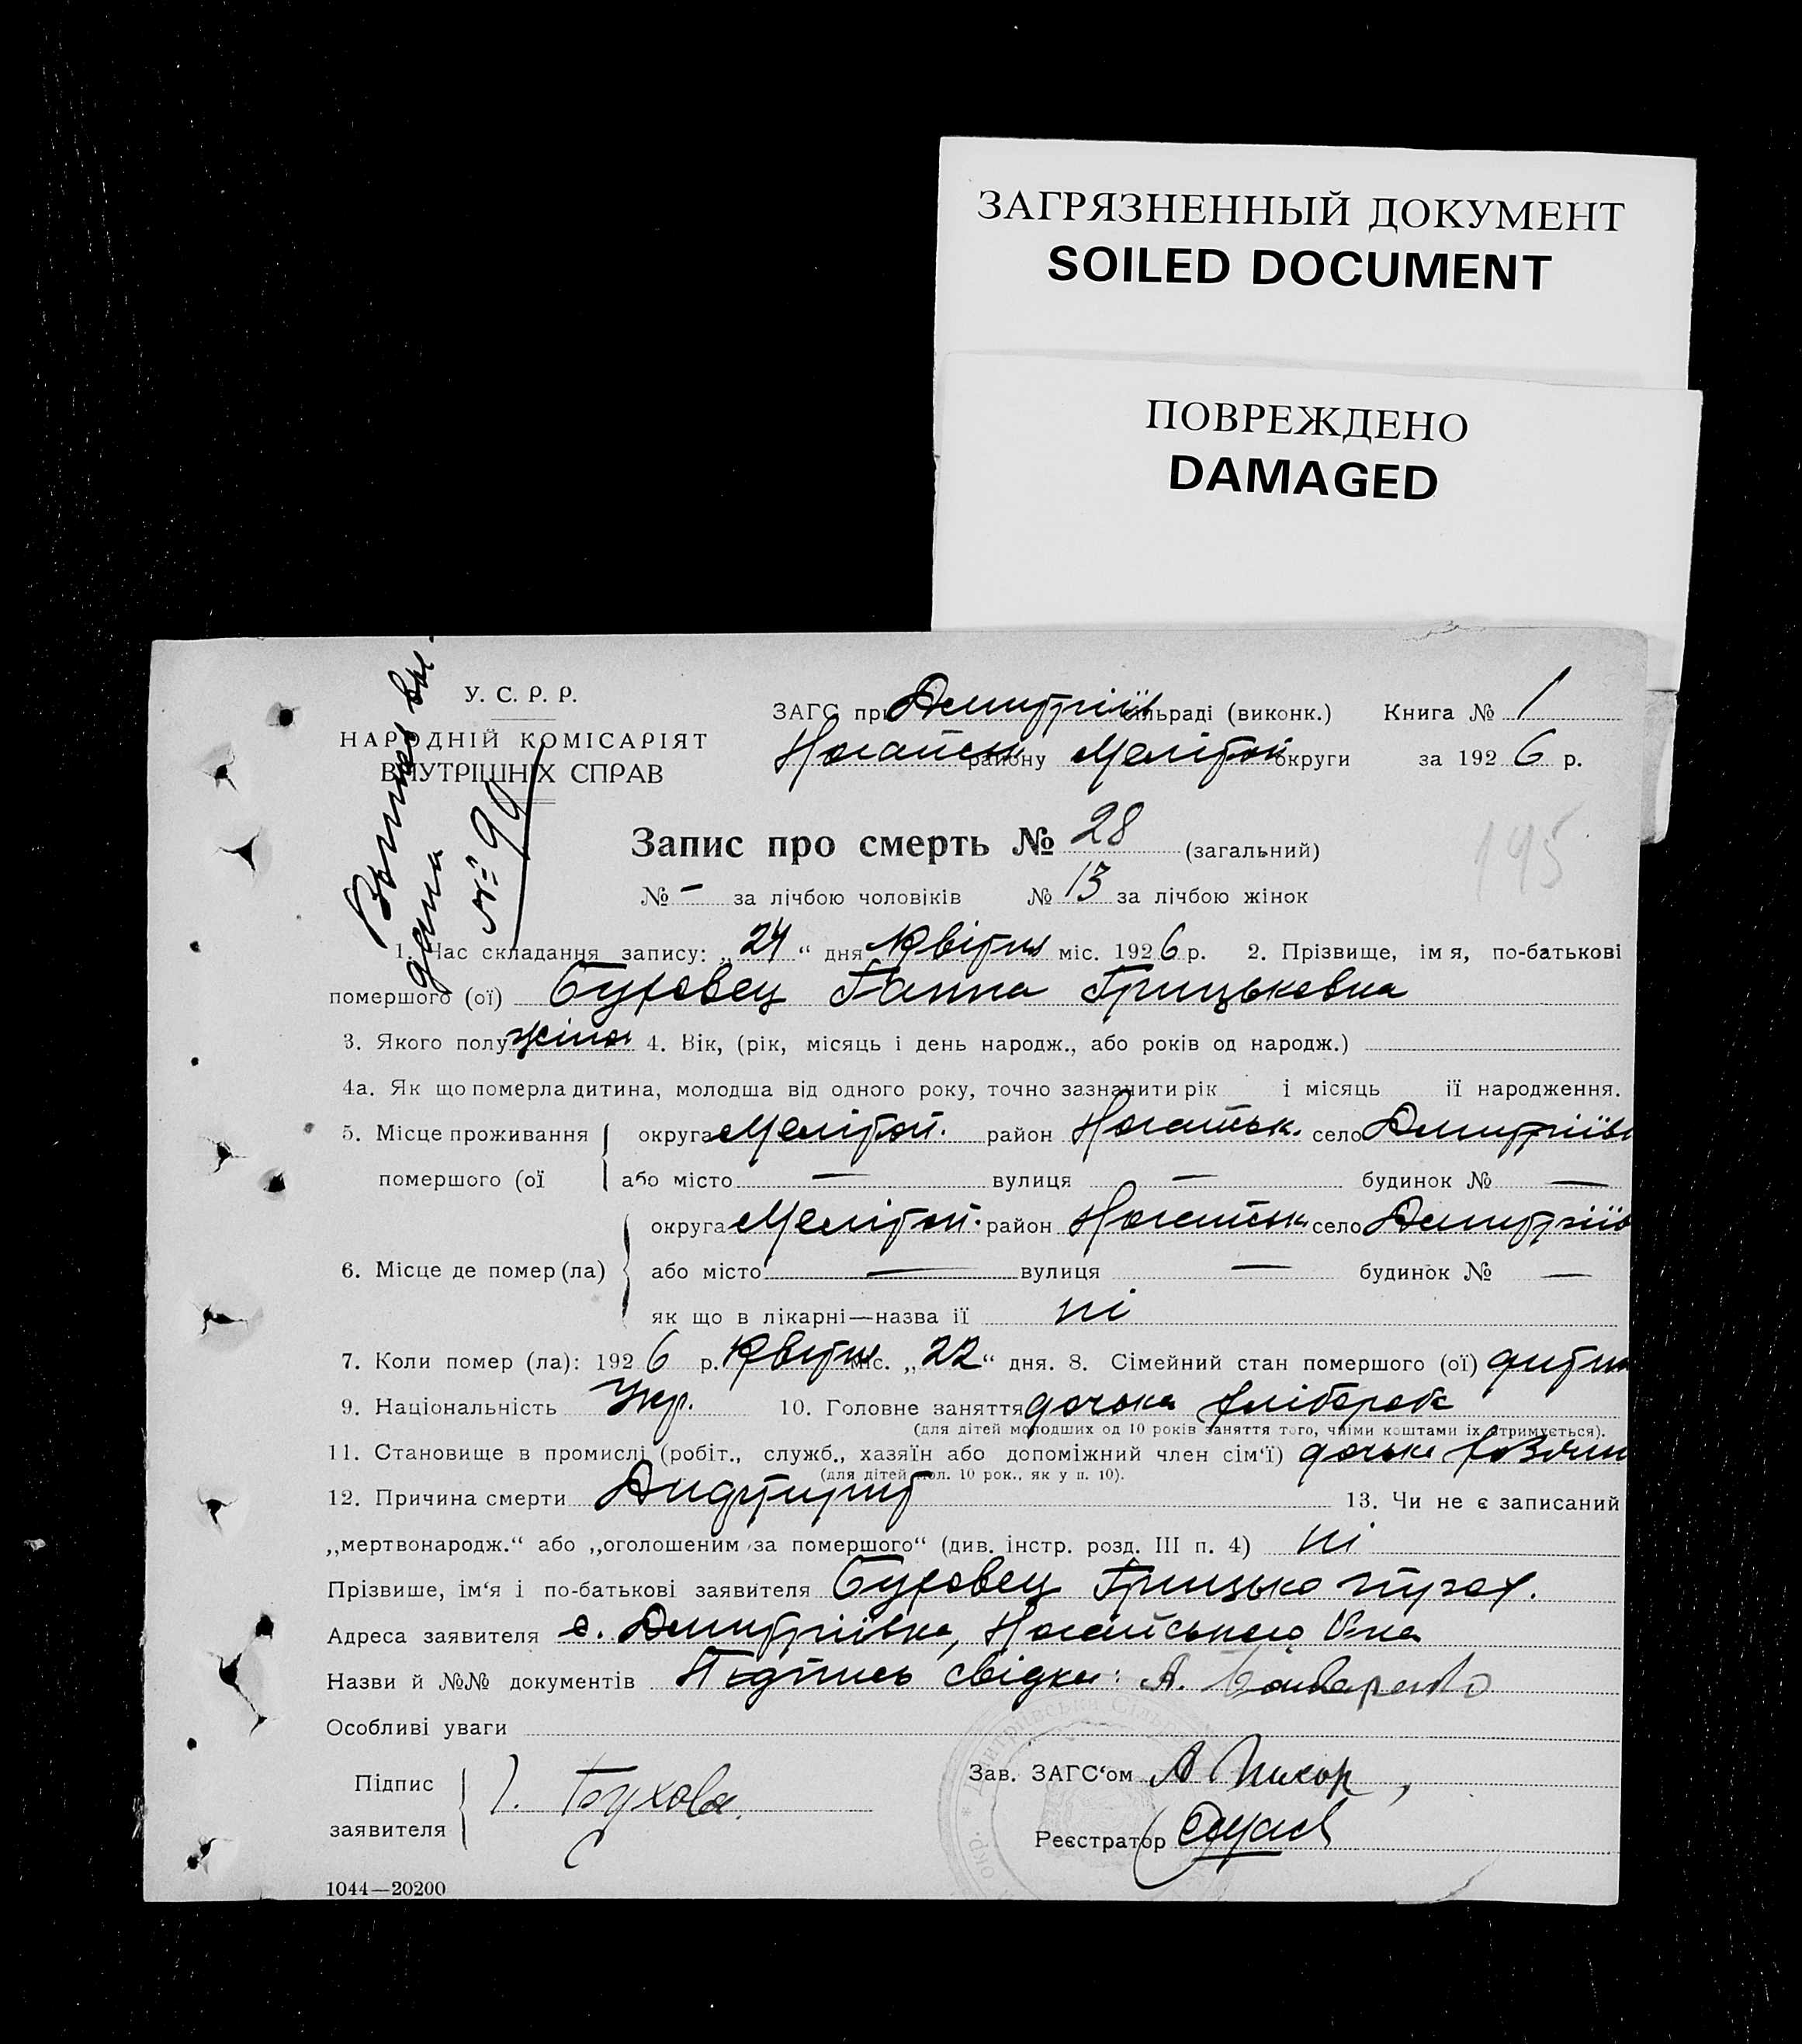 ЗАГРЯЗНЕННЫЙ ДОКУМЕНТ
SOILED DOCUMENT
ПОВРЕЖДЕНО
DAMAGED
У. С. Р. Р.
НАРОДНІЙ КОМІСАРІЯТ
ВНУТРІШНІХ СПРАВ
дана
№ 99
ЗАГС при Дмитріїв сільраді (виконк.) Книга № 1
Ногайськ району Мелітоп округи за 1926 р.
Запис про смерть № 28 (загальний)
195
№ – за лічбою чоловіків № 13 за лічбою жінок
1. Час складання запису: „24“ дня Квітня міс. 1926 р. 2. Прізвище, імя, по-батькові
помершого (ої) Буховец Ганна Грицьковна
3. Якого полу жіноч 4. Вік, (рік, місяць і день народж., або років од народж.)
4а. Як що померла дитина, молодша від одного року, точно зазначити рік і місяць її народження.
5. Місце проживання округа Мелітоп. район Ногайськ. село Дмитріївк
помершого (ої або місто — вулиця — будинок № —
6. Місце де помер (ла) округа Мелітоп. район Ногайськ. село Дмитріїв
або місто — вулиця — будинок № —
як що в лікарні—назва її ні
7. Коли помер (ла): 1926 р. Квітня міс. „22“ дня. 8. Сімейний стан помершого (ої) дитина
9. Національність Укр. 10. Головне заняття дочька хлібороба
(для дітей молодших од 10 років заняття того, чиїми коштами їх утримується).
11. Становище в промислі (робіт., служб., хазяїн або допоміжний член сім'ї) дочьке хозяин
(для дітей мол. 10 рок., як у п. 10).
12. Причина смерти 13. Чи не є записаний
„мертвонародж.“ або „оголошеним за помершого“ (див. інстр. розд. III п. 4) ні
Прізвише, ім'я і по-батькові заявителя Буховец Грицько
Адреса заявителя с. Дмитріївка, Ногайського Р-на
Назви й №№ документів Підпись свідка: А. Бондаренко
Особливі уваги
Підпис
заявителя Г. Бухове
Зав. ЗАГС'ом А
Реєстратор
1044—20200